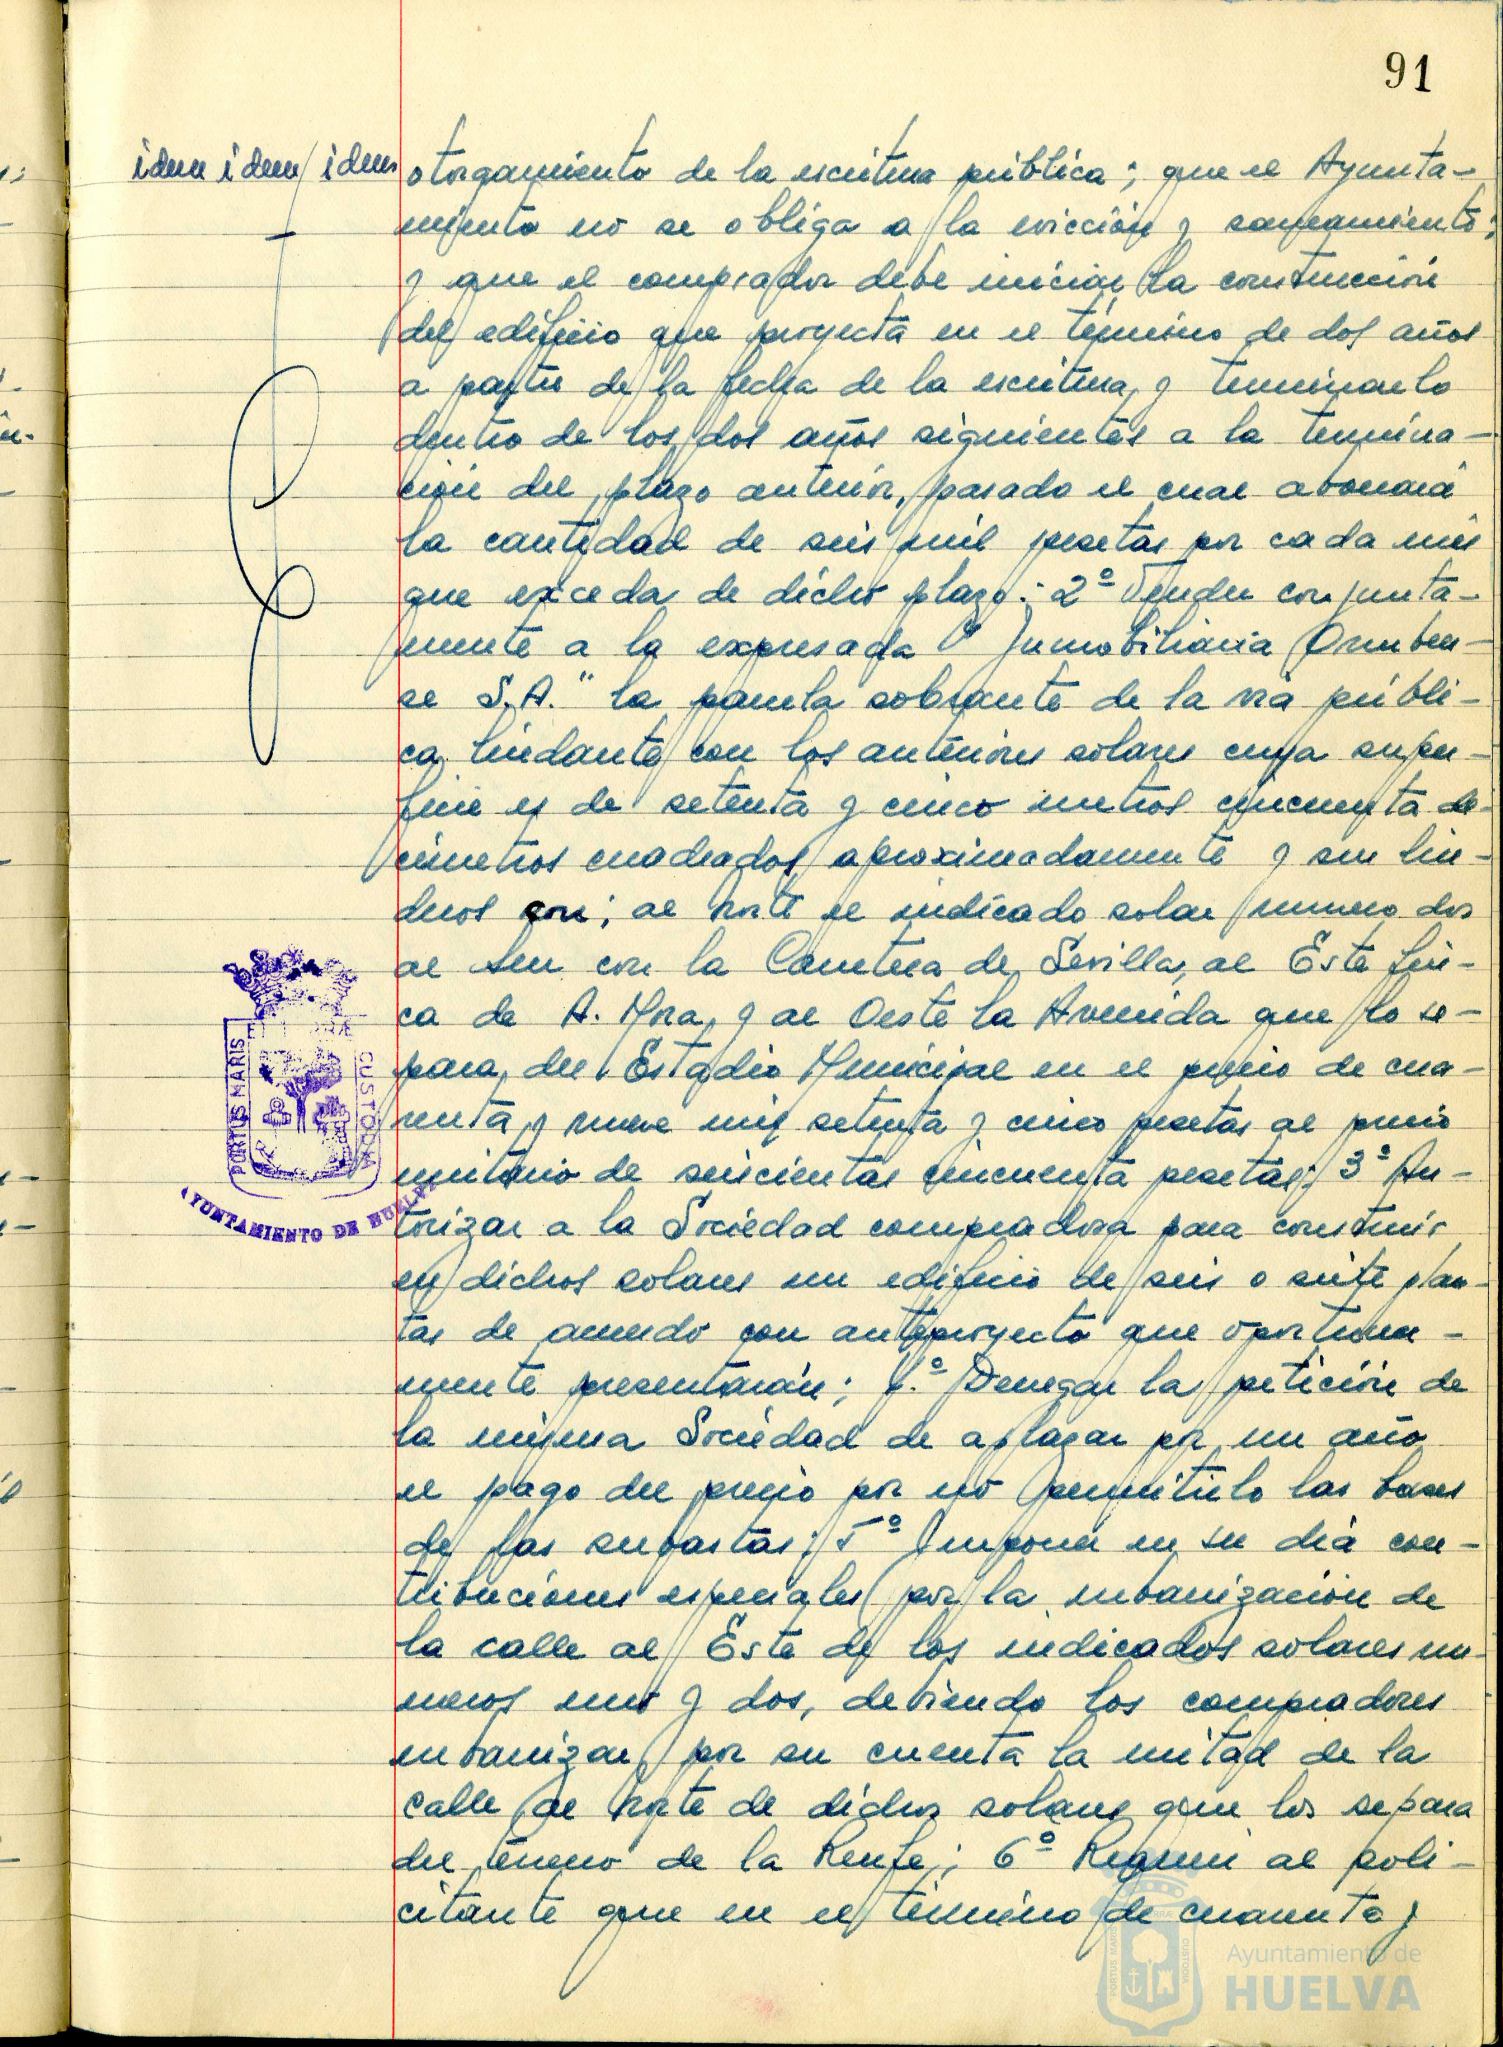 91
idem idem idem
otorgamiento de la escritura pública; que el Ayunta-
miento no se obliga a la evicción y saneamiento;
y que el comprador debe iniciar la construcción
del edificio que proyecta en el término de dos años
a partir de la fecha de la escritura, y terminarlo
dentro de los dos años siguientes a la termina-
ción del plazo anterior, pasado el cual abonará
la cantidad de seis mil pesetas por cada mes
que exceda de dicho plazo; 2º Vender conjunta-
mente a la expresada "Inmobiliaria Onuben-
se S.A." la parcela sobrante de la vía públi-
ca lindante con los anteriores solares cuya super-
ficie es de setenta y cinco metros cincuenta de-
címetros cuadrados aproximadamente y sus lin-
deros son; al Norte el indicado solar numero dos
al Sur con la Carretera de Sevilla, al Este fin-
ca de A. Mora, y al Oeste la Avenida que lo se-
para del Estadio Municipal en el precio de cua-
renta y nueve mil setenta y cinco pesetas al precio
unitario de seiscientas cincuenta pesetas; 3º Au-
torizar a la Sociedad compradora para construir
en dichos solares un edificio de seis o siete plan-
tas de acuerdo con anteproyecto que oportuna-
mente presentarán; 4.º Denegar la petición de
la misma Sociedad de aplazar por un año
el pago del precio por no permitirlo las bases
de las subastas; 5º Imponer en su día con-
tribuciones especiales por la urbanización de
la calle al Este de los indicados solares nu-
meros uno y dos, debiendo los compradores
urbanizar por su cuenta la mitad de la
calle al Norte de dichos solares que los separa
del terreno de la Renfe; 6º Requerir al poli-
citante que en el término de cuarenta y
PORTUS MARIS
CUSTODIA
AYUNTAMIENTO DE HUELVA
Ayuntamiento de
HUELVA